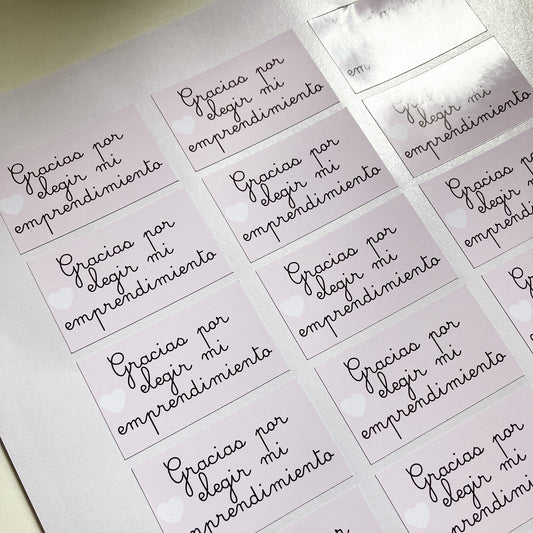 Gracias por
elegir mi
emprendimiento
Gracias por
elegir mi
emprendimiento
Gracias por
elegir mi
emprendimiento
Gracias por
elegir mi
Gracias por
elegir mi
emprendimiento
Gracias por
elegir mi
emprendimiento
Gracias por
elegir mi
emprendimiento
Gracias por
elegir mi
emprendimiento
Gracias por
elegir mi
em
elegir mi
emprendimiento
Gracias por
elegir mi